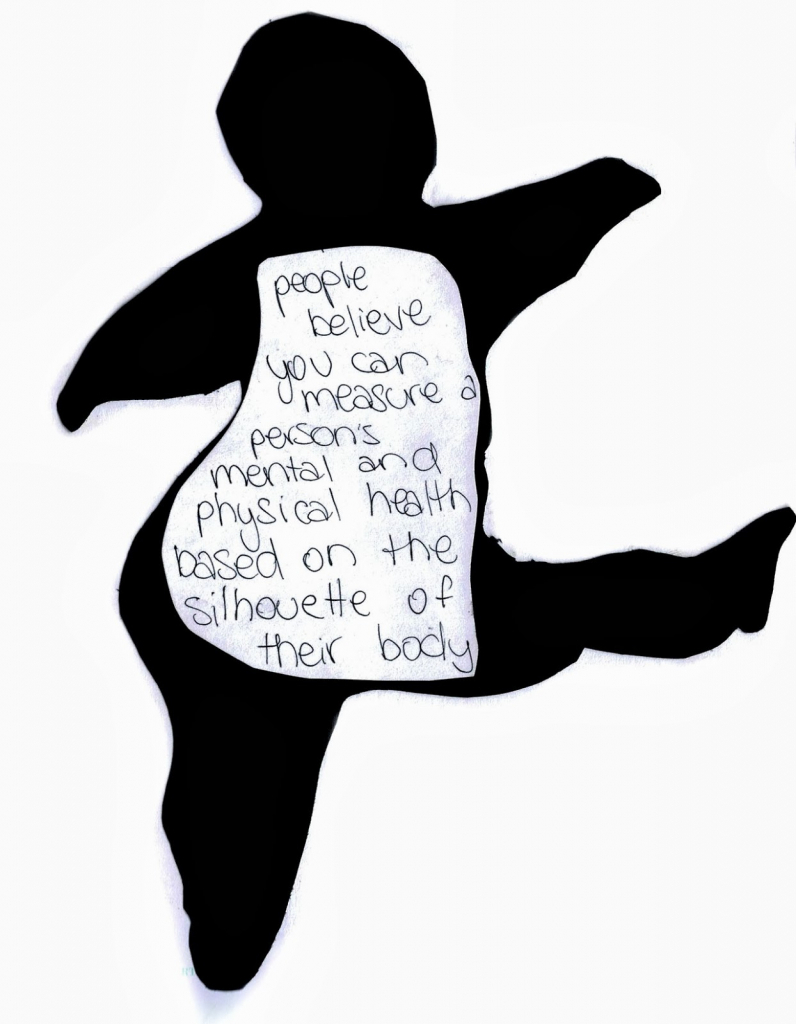 people
believe
you can
measure a
person's
mental and
physical health
based on the
silhouette of
their body